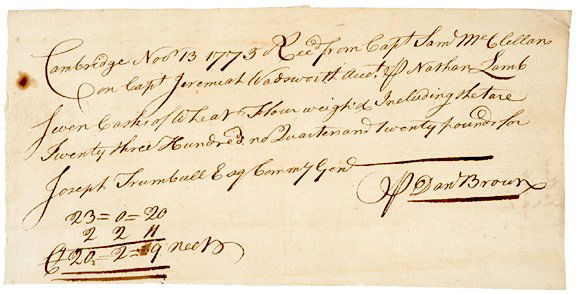 Cambridge Novr 13 1775 Recd from Capt Saml McClellan
on Capt Jeremiah Wadsworth Acct ⅌ Nathan Lamb
Seven Casks of Wheat Flour weigh'd Including the tare
Twenty three Hundred, no Quarter and twenty pounds for
Joseph Trumbull Esq Commy Genl
⅌ Danl Brown
23=0=20
2 2 11
20=2=9 neet